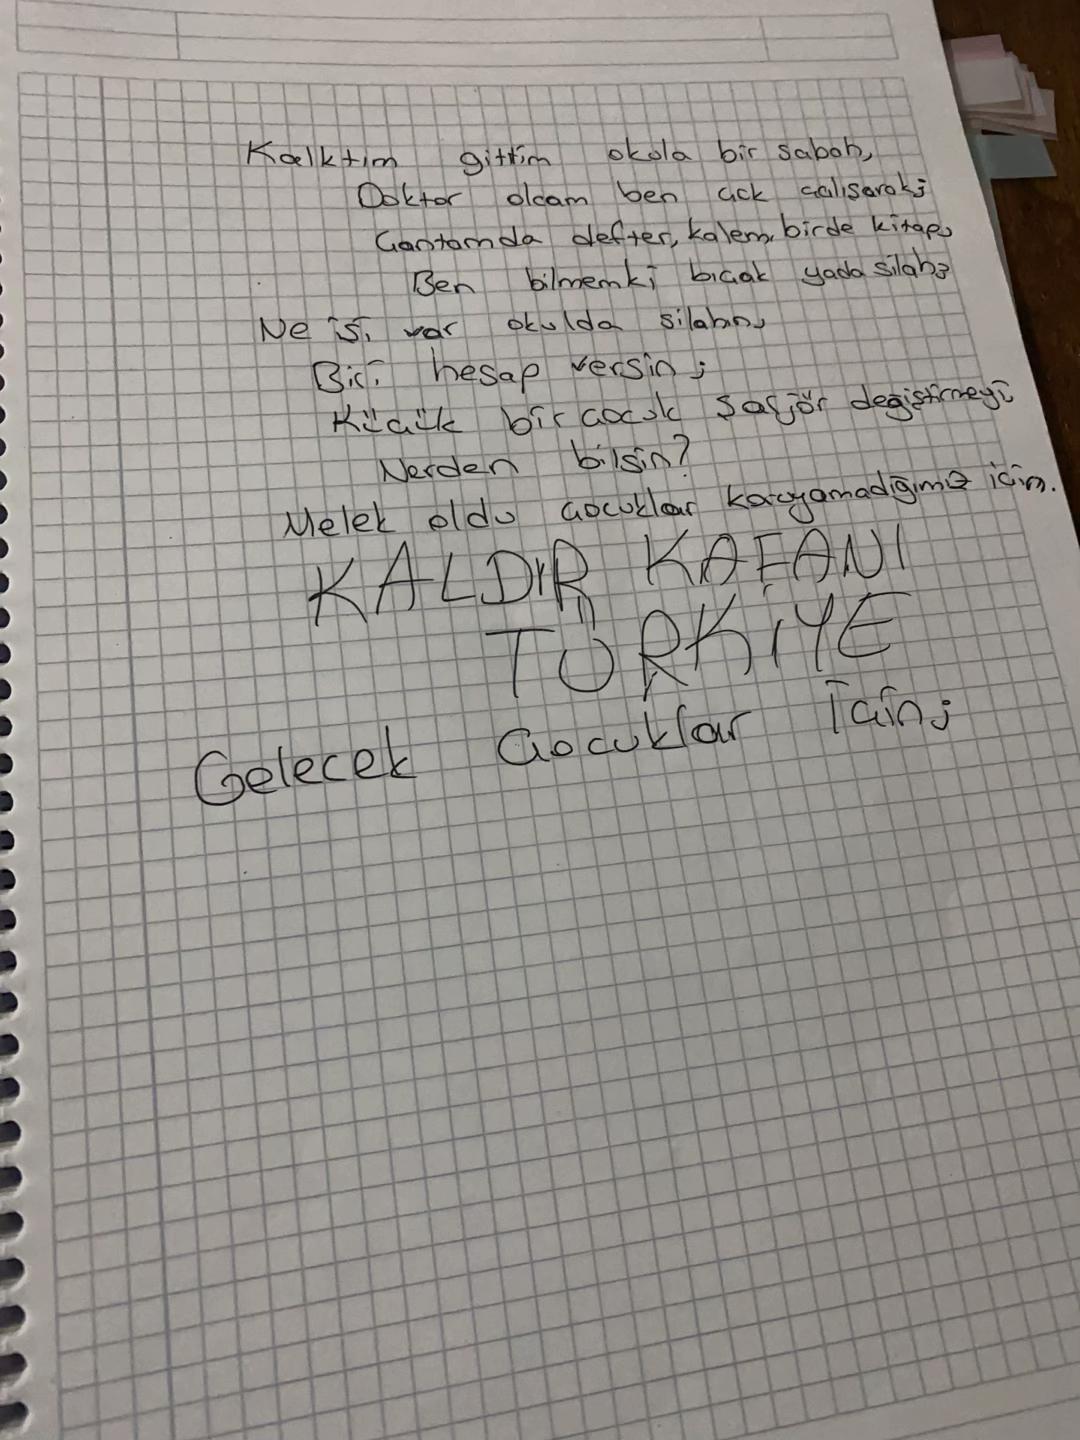 Kalktım gittim okola bir sabah,
Doktor olcam ben çok çalışarak;
Çantamda defter, kalem, birde kitap,
Ben bilmemki bıçak yada silah;
Ne işi var okulda silahın,
Biri hesap versin;
Küçük bir çocuk şarjör değiştirmeyi
Nerden bilsin?
Melek oldu çocuklar koruyamadığımız için.
KALDIR KAFANI
TÜRKİYE
Gelecek Çocuklar İçin;